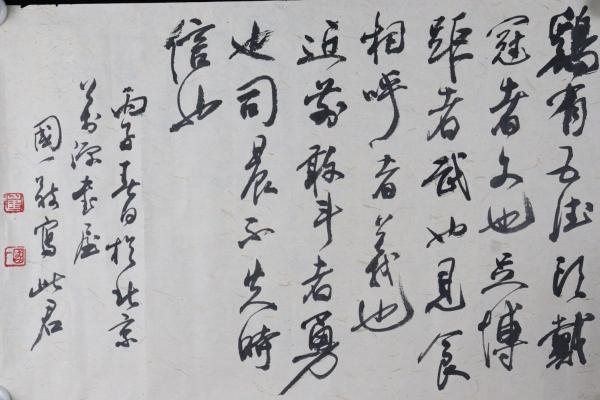 鷄有五德頭戴
冠者文也足博
距者武也見食
相呼者義也
近前敢斗者勇
也司晨不失時
信也
丙子春日於北京
萬源書屋
國一敬寫此君